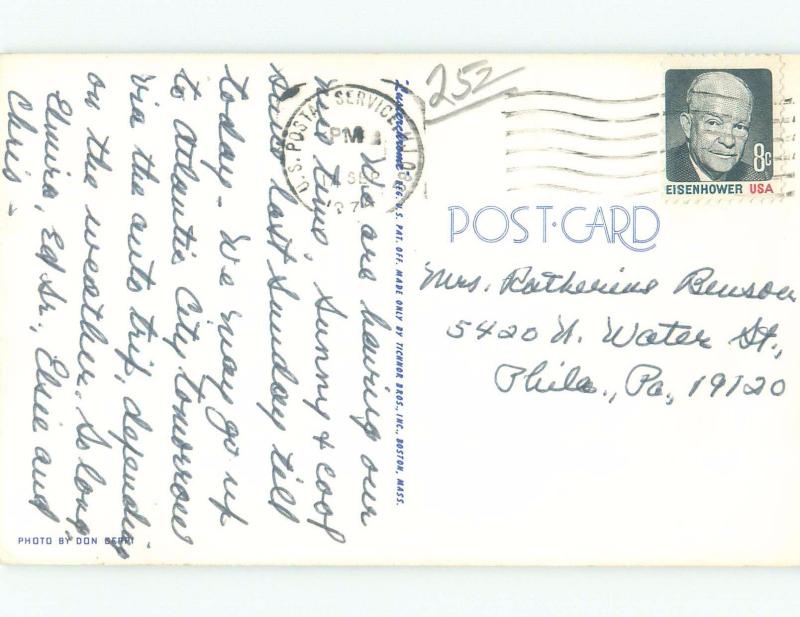 We are having our
nice time. Sunny & cool
since last Sunday till
today. We may go up
to Atlantic City tomorrow
via the auto trip, depending
on the weather. So long,
Elmira, Ed Sr., Elsie and
Chris
PHOTO BY DON
"Lusterchrome" REG. U.S. PAT. OFF. MADE ONLY BY TICHNOR BROS., INC., BOSTON, MASS.
252
U.S. POSTAL SERVICE, NJ 08
PM
14 SEP
197
8c
EISENHOWER USA
POST-CARD
Mrs. Katherine Benson
5420 N. Water St.,
Phila., Pa., 19120